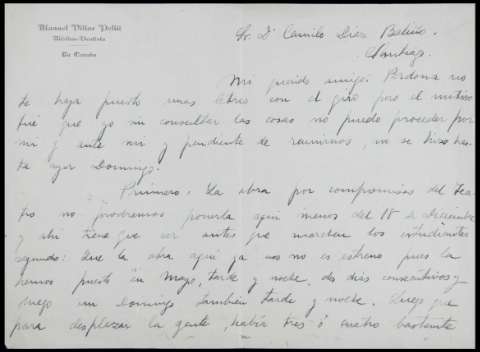 Manuel Villar Pellit
Médico-Dentista
La Coruña
Sr. D. Camilo Díaz Baliño.
Santiago.
Mi querido amigo: Perdona no
te haya puesto unas letras con el giro pero el motivo
fué que yo sin consultar las cosas no puedo proceder por
mi y ante mi y pendiente de reunirnos, no se hizo has-
ta ayer Domingo.
Primero: La obra por compromisos del tea-
tro no podremos ponerla aqui menos del 18 de diciembre
y ahi tiene que ser antes que marchen los estudiantes
segundo: Que la obra aqui ya no es estreno pues la
hemos puesto en Mayo, tarde y noche, dos dias consecutivos y
luego un Domingo tambien tarde y noche. Luego que
para desplazar la gente, habia tres ó cuatro bastante